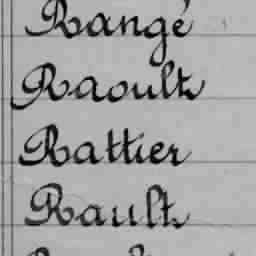 Rangé
Raoult
Rattier
Rault